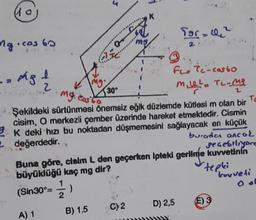 10)
K
mg
mg . cos 60
O
mg.
mg cos 60
30°
Fc = Tc - cos 60
L
Şekildeki sürtünmesi önemsiz eğik düzlemde kütlesi m olan bir
cisim, O merkezli çember üzerinde hareket etmektedir. Cismin
K deki hızı bu noktadan düşmemesini sağlayacak en küçük
değerdedir.
buradan ancak
geçebiliyor
Buna göre, cisim L den geçerken ipteki gerilme kuvvetinin
büyüklüğü kaç mg dir?
tepki
kuvveti
(Sin30°= 1/2)
A) 1 B) 1,5 C) 2 D) 2,5 E) 3